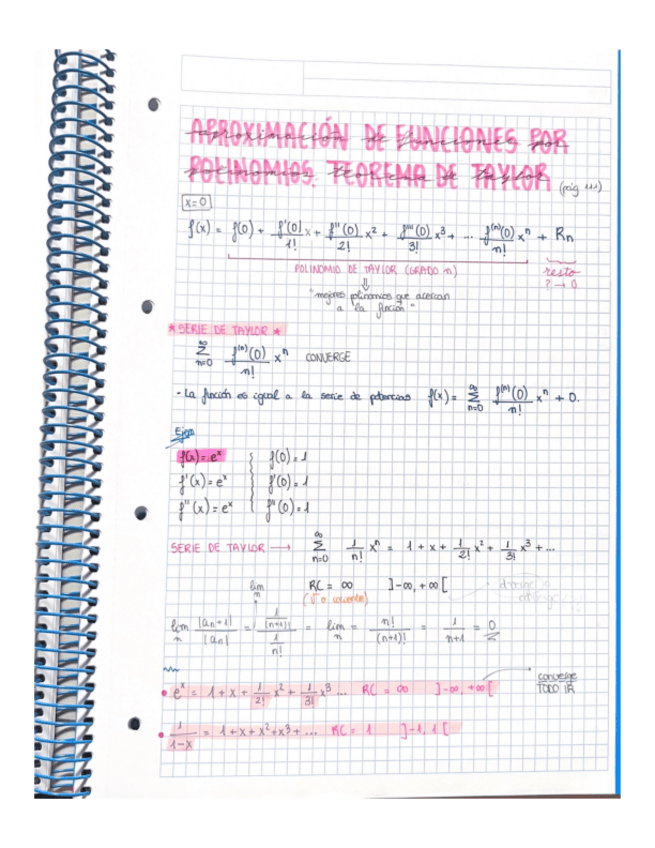 APROXIMACIÓN DE FUNCIONES POR
POLINOMIOS. TEOREMA DE TAYLOR (pág 111)
x=0
f(x) = f(0) + f'(0)/1! x + f''(0)/2! x² + f'''(0)/3! x³ + ... f⁽ⁿ⁾(0)/n! xⁿ + Rn
POLINOMIO DE TAYLOR (GRADO n) resto
⇓ ? → 0
"mejores polinomios que acercan
a la función"
* SERIE DE TAYLOR *
∞∑n=0 f⁽ⁿ⁾(0)/n! xⁿ CONVERGE
- La función es igual a la serie de potencias f(x) = ∞∑n=0 f⁽ⁿ⁾(0)/n! xⁿ + 0.
Ejem
f(x) = eˣ f(0) = 1
f'(x) = eˣ f'(0) = 1
f''(x) = eˣ f''(0) = 1
SERIE DE TAYLOR → ∞∑n=0 1/n! xⁿ = 1 + x + 1/2! x² + 1/3! x³ + ...
lim n RC = ∞ ]-∞, +∞[
(√ o cociente)
lim n |an+1|/|an| = (1/(n+1)!)/(1/n!) = lim n = n!/(n+1)! = 1/n+1 = 0
• eˣ = 1 + x + 1/2! x² + 1/3! x³ ... RC = ∞ ]-∞, +∞[ converge
TODO ℝ
• 1/1-x = 1 + x + x² + x³ + ... RC = 1 ]-1, 1[